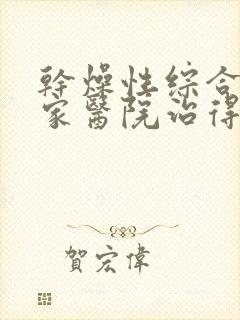 幹燥性綜合
家醫院治得
賀宏偉